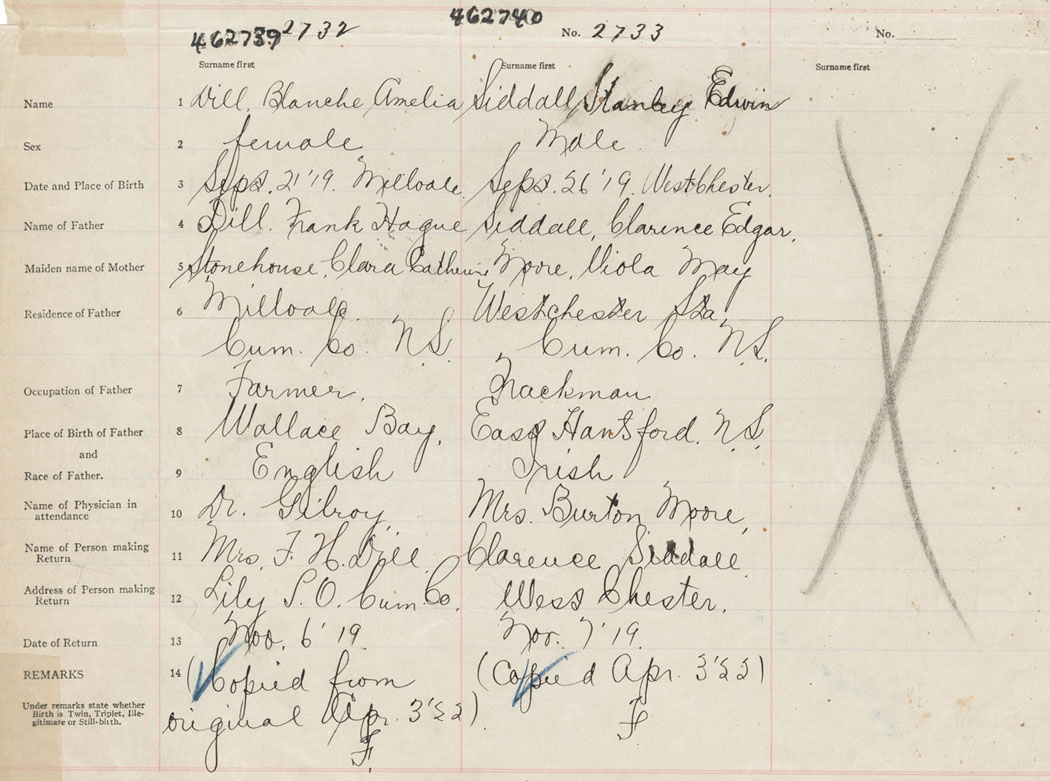 462740
462739 2732 No. 2733 No.
Surname first Surname first Surname first
Name 1 Dill, Blanche Amelia Siddall, Stanley Edwin
Sex 2 female Male
Date and Place of Birth 3 Sept. 21 '19. Millvale Sept. 26 '19. Westchester.
Name of Father 4 Dill. Frank Hague Siddall, Clarence Edgar,
Maiden name of Mother 5 Stonehouse, Clara Catherine Moore, Viola May
Residence of Father 6 Millvale. Westchester Sta
Cum. Co. N.S. Cum. Co. N.S.
Occupation of Father 7 Farmer. Trackman
Place of Birth of Father 8 Wallace Bay. East Hantsford. N.S.
and
Race of Father. 9 English Irish
Name of Physician in 10 Dr. Gilroy Mrs. Burton Moore,
attendance
Name of Person making 11 Mrs. F. H. Dill Clarence Siddall
Return
Address of Person making 12 Lily P.O. Cum Co. West Chester.
Return
Date of Return 13 Nov. 6 '19 Nov. 7 '19.
REMARKS 14 (Copied from (Copied Apr. 3 '22)
Under remarks state whether
Birth is Twin, Triplet, Ille-
gitimate or Still-birth.
original Apr. 3 '22)
F. F